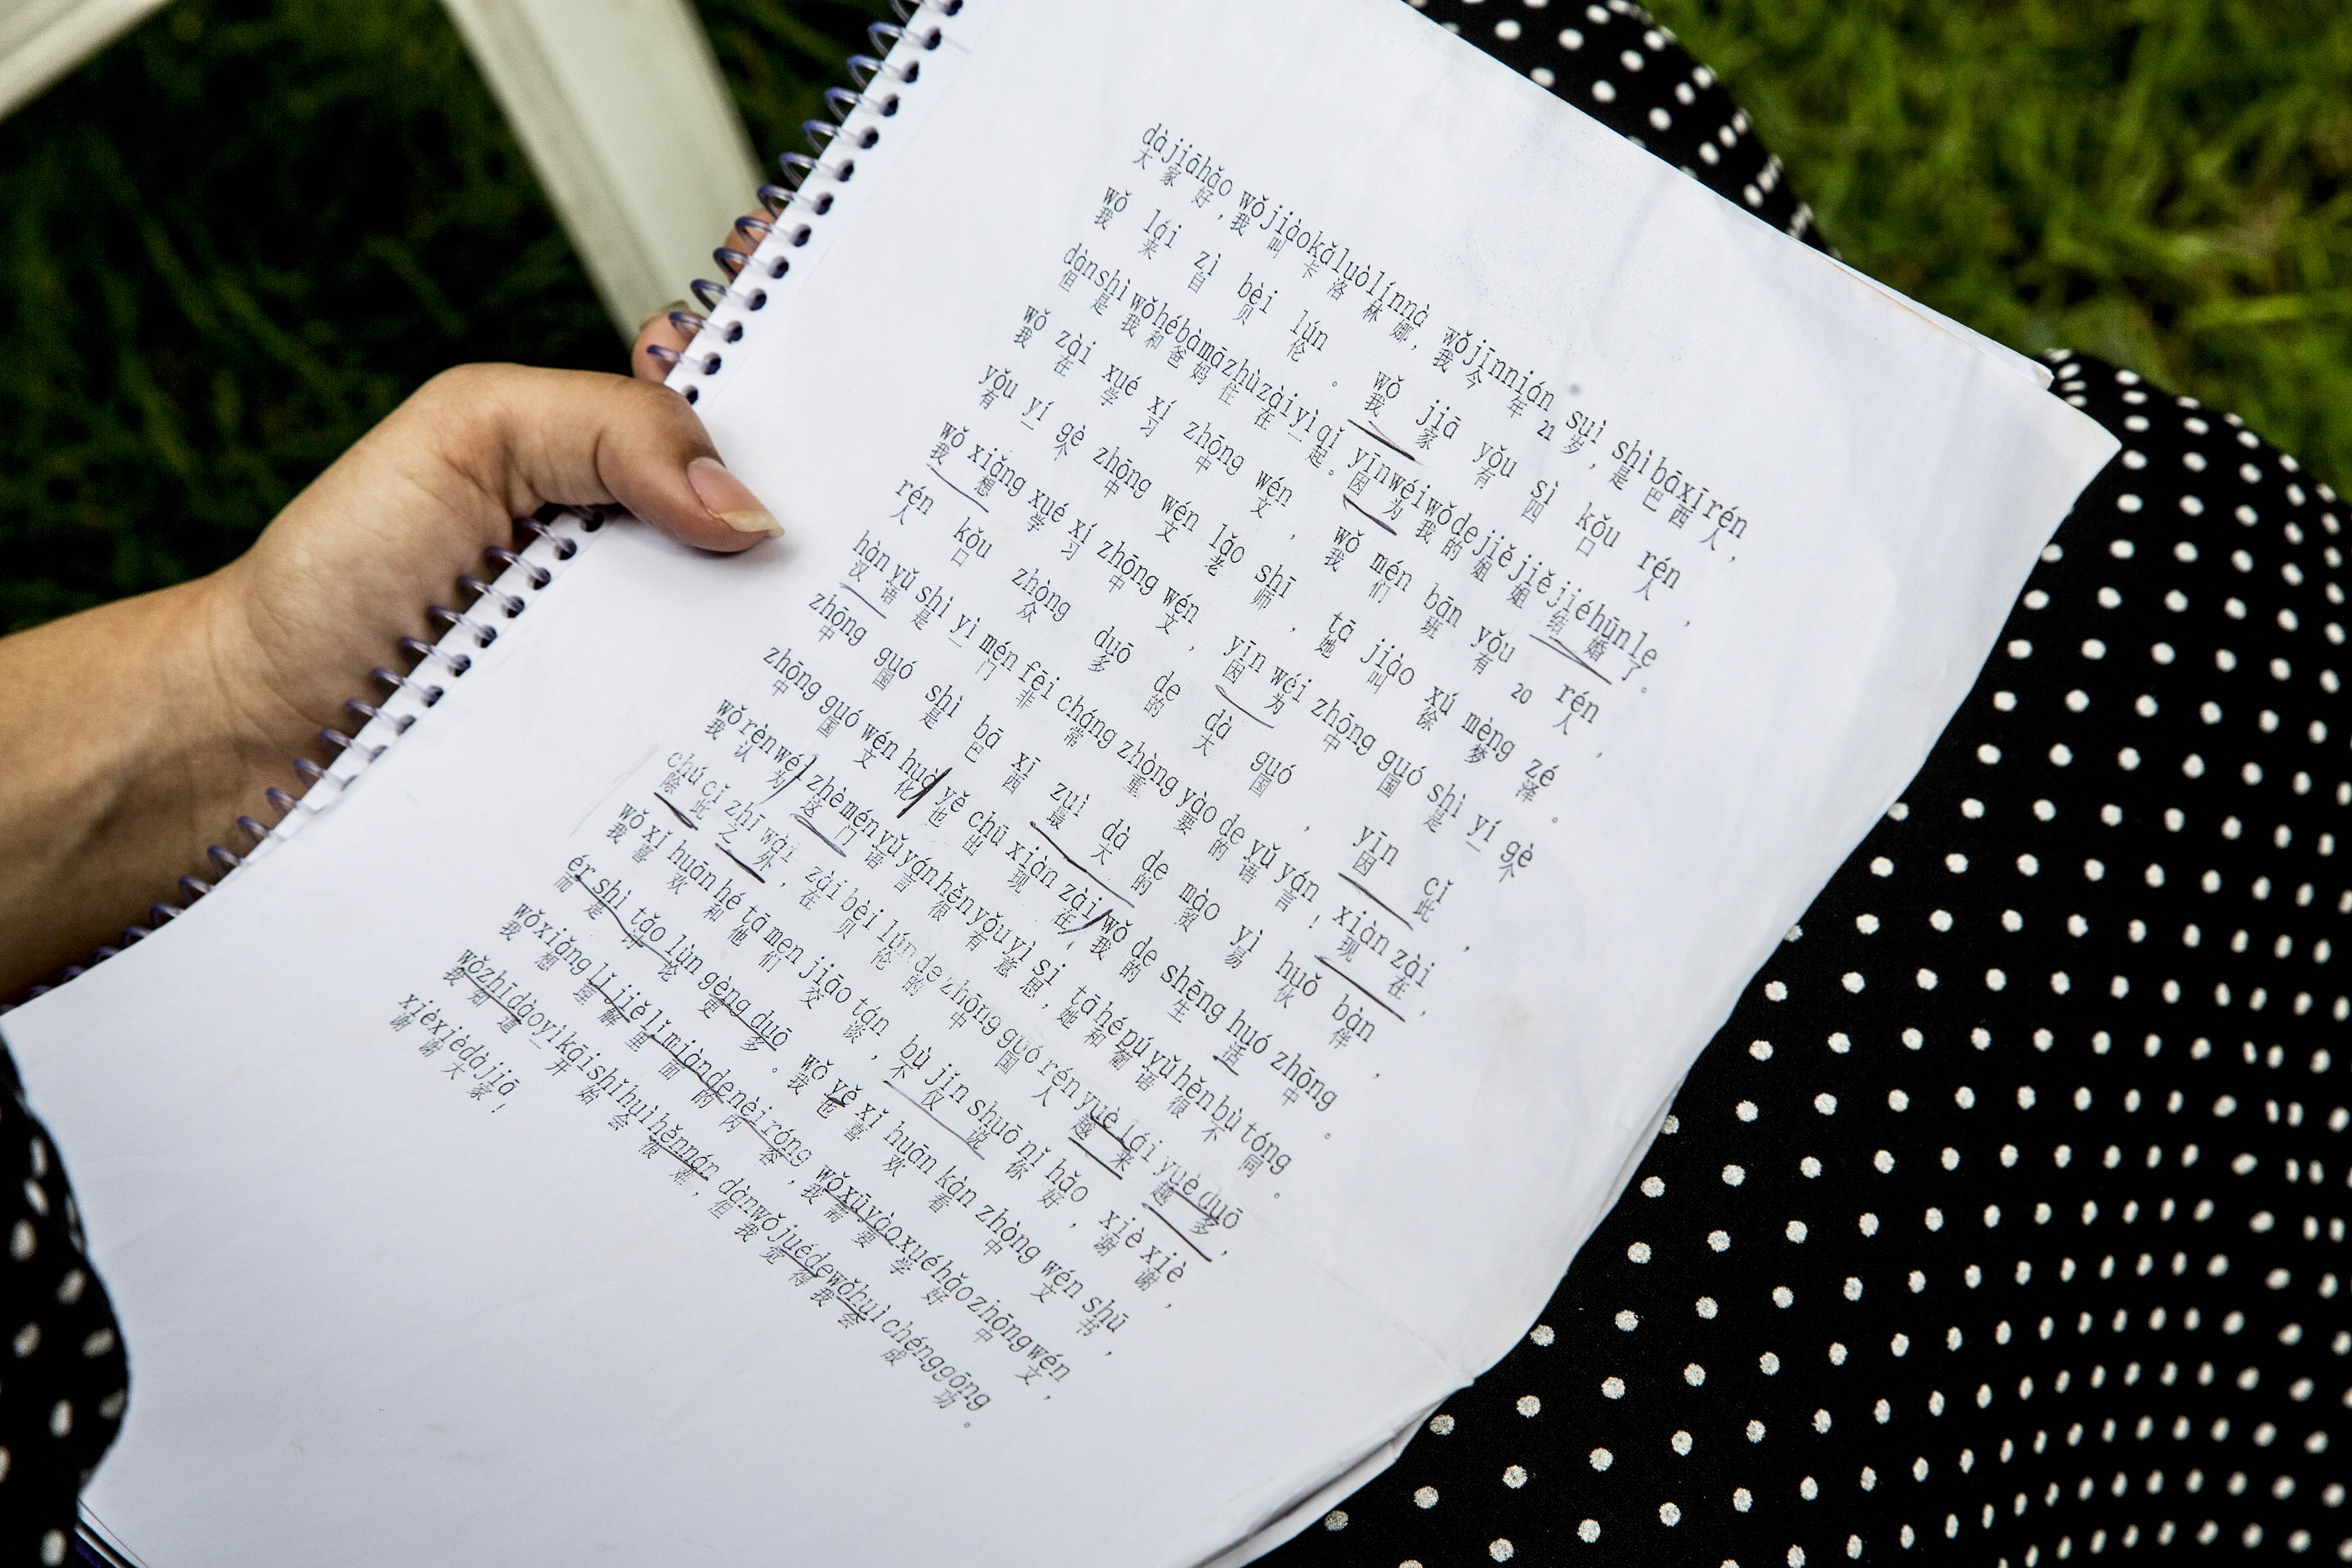 dàjiāhǎo wǒjiàokǎluòlínnà wǒjīnnián suì shìbāxīrén
大家好，我叫卡洛林娜，我今年21岁，是巴西人，
wǒ lái zì bèi lún wǒ jiā yǒu sì kǒu rén
我来自贝伦。我家有四口人，
dànshìwǒhébàmāzhùzàiyìqǐ yīnwéiwǒdejiějiějiéhūnle
但是我和爸妈住在一起。因为我的姐姐结婚了。
wǒ zài xué xí zhōng wén wǒ mén bān yǒu rén
我在学习中文，我们班有20人，
yǒu yí gè zhōng wén lǎo shī tā jiào xú mèng zé
有一个中文老师，她叫徐梦泽。
wǒ xiǎng xué xí zhōng wén yīn wéi zhōng guó shì yí gè
我想学习中文，因为中国是一个
rén kǒu zhòng duō de dà guó yīn cǐ
人口众多的大国，因此，
hàn yǔ shì yì mén fēi cháng zhòng yào de yǔ yán xiàn zài
汉语是一门非常重要的语言！现在，
zhōng guó shì bā xī zuì dà de mào yì huǒ bàn
中国是巴西最大的贸易伙伴，
zhōng guó wén huà yě chū xiàn zài wǒ de shēng huó zhōng
中国文化也出现在我的生活中。
wǒrènwéi zhèményǔyánhěnyǒuyìsi tāhépúyǔhěnbùtóng
我认为，这门语言很有意思，她和葡语很不同。
chú cǐ zhī wài zài bèi lún de zhōng guó rén yuè lái yuè duō
除此之外，在贝伦的中国人越来越多，
wǒ xǐ huān hé tā men jiāo tán bù jǐn shuō nǐ hǎo xiè xiè
我喜欢和他们交谈，不仅说你好，谢谢，
ér shì tǎo lùn gèng duō wǒ yě xǐ huān kàn zhòng wén shū
而是讨论更多。我也喜欢看中文书，
wǒxiǎnglǐjiělǐmiàndenèiróng wǒxūyàoxuéhǎozhōngwén
我想理解里面的内容，我需要学好中文，
wǒzhīdàoyìkāishǐhuìhěnnán dànwǒjuédewǒhuìchénggōng
我知道一开始会很难，但我觉得我会成功。
xièxièdàjiā
谢谢大家！